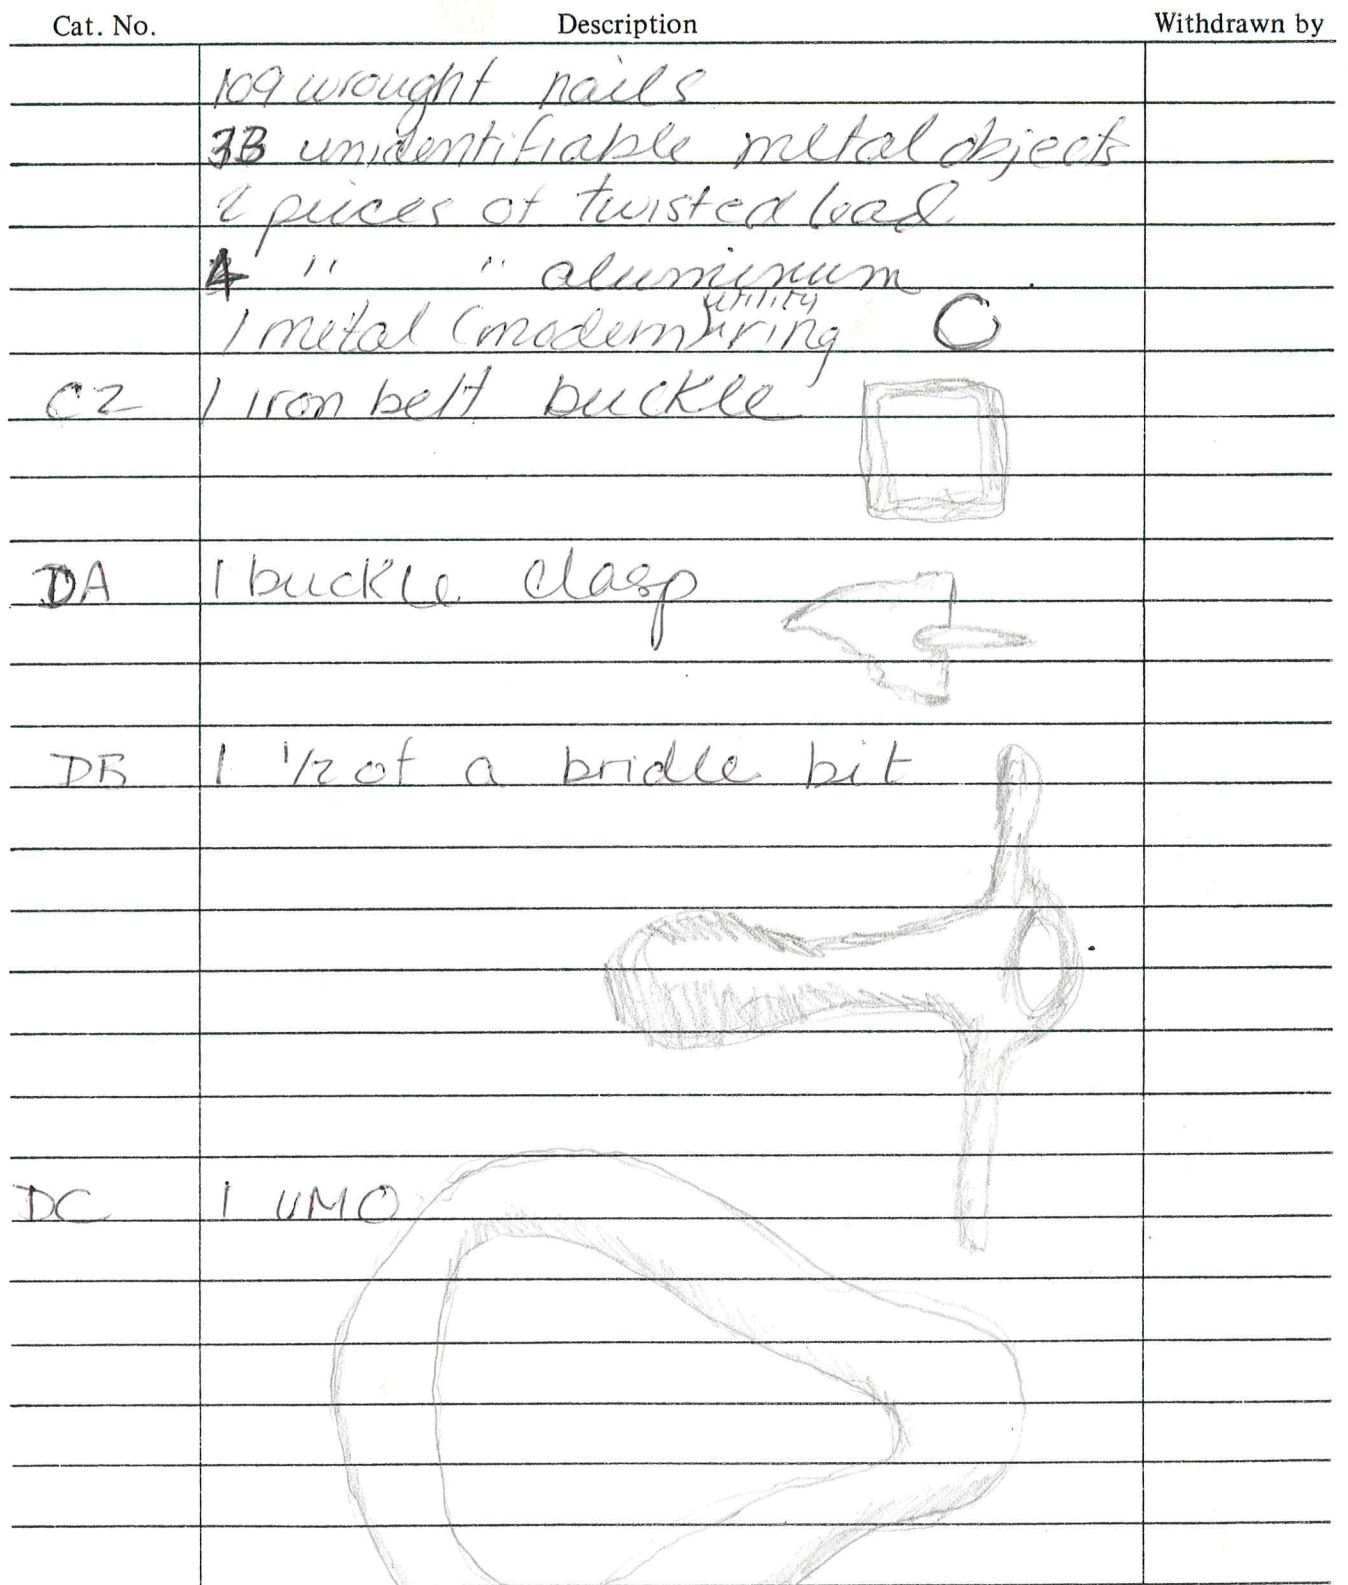 Cat. No. Description Withdrawn by
109 wrought nails
unidentifiable metal objects
2 pieces of twisted lead
4 " " aluminum
1 metal (modern) utility ring
CZ 1 iron belt buckle
DA 1 buckle clasp
DB 1 1/2 of a bridle bit
DC 1 UMO